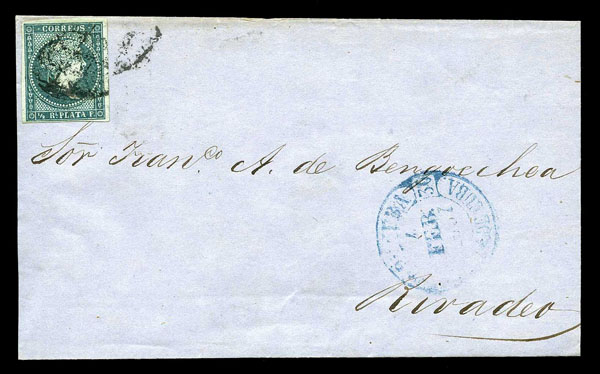 CORREOS
½ Rl. PLATA F.
Sōr. Franco A. de Bengoechea
7
FEB
Rivadeo